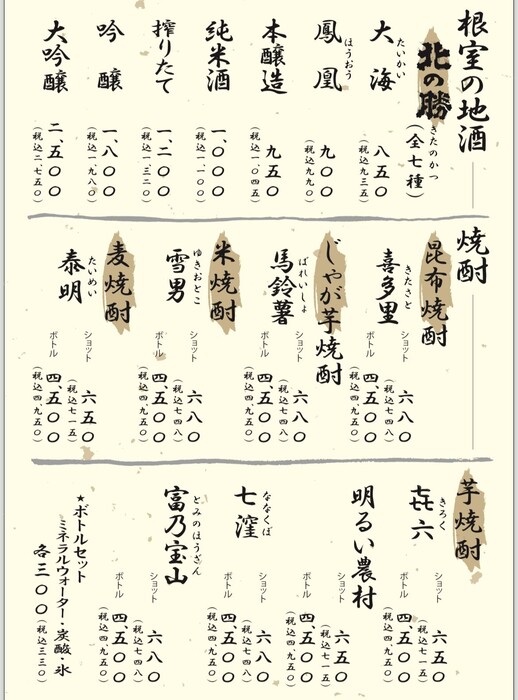 根室の地酒
北の勝
きたのかつ
(全七種)
大海
たいかい
八五〇
(税込九三五)
鳳凰
ほうおう
九〇〇
(税込九九〇)
本醸造
九五〇
(税込一、〇四五)
純米酒
一、〇〇〇
(税込一、一〇〇)
搾りたて
一、二〇〇
(税込一、三二〇)
吟醸
一、八〇〇
(税込一、九八〇)
大吟醸
二、五〇〇
(税込二、七五〇)
焼酎
昆布焼酎
喜多里
きたさと
ショット
六八〇
(税込七四八)
ボトル
四、五〇〇
(税込四、九五〇)
じゃが芋焼酎
馬鈴薯
ばれいしょ
ショット
六八〇
(税込七四八)
ボトル
四、五〇〇
(税込四、九五〇)
米焼酎
雪男
ゆきおとこ
ショット
六八〇
(税込七四八)
ボトル
四、五〇〇
(税込四、九五〇)
麦焼酎
泰明
たいめい
ショット
六五〇
(税込七一五)
ボトル
四、五〇〇
(税込四、九五〇)
芋焼酎
㐂六
きろく
ショット
六五〇
(税込七一五)
ボトル
四、五〇〇
(税込四、九五〇)
明るい農村
ショット
六五〇
(税込七一五)
ボトル
四、五〇〇
(税込四、九五〇)
七窪
ななくぼ
ショット
六八〇
(税込七四八)
ボトル
四、五〇〇
(税込四、九五〇)
富乃宝山
とみのほうざん
ショット
六八〇
(税込七四八)
ボトル
四、五〇〇
(税込四、九五〇)
★ボトルセット
ミネラルウォーター・炭酸・氷
各三〇〇(税込三三〇)